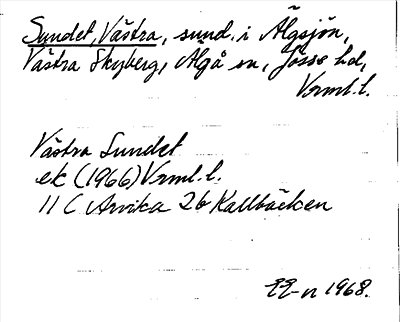 Sundet, Västra, sund i Älgsjön,
Västra Skyberg, Älgå sn, Jösse hd,
Vrml.l.
Västra Sundet
ek (1966) Vrml.l.
11 C Arvika 2b Kallbäcken
1968.